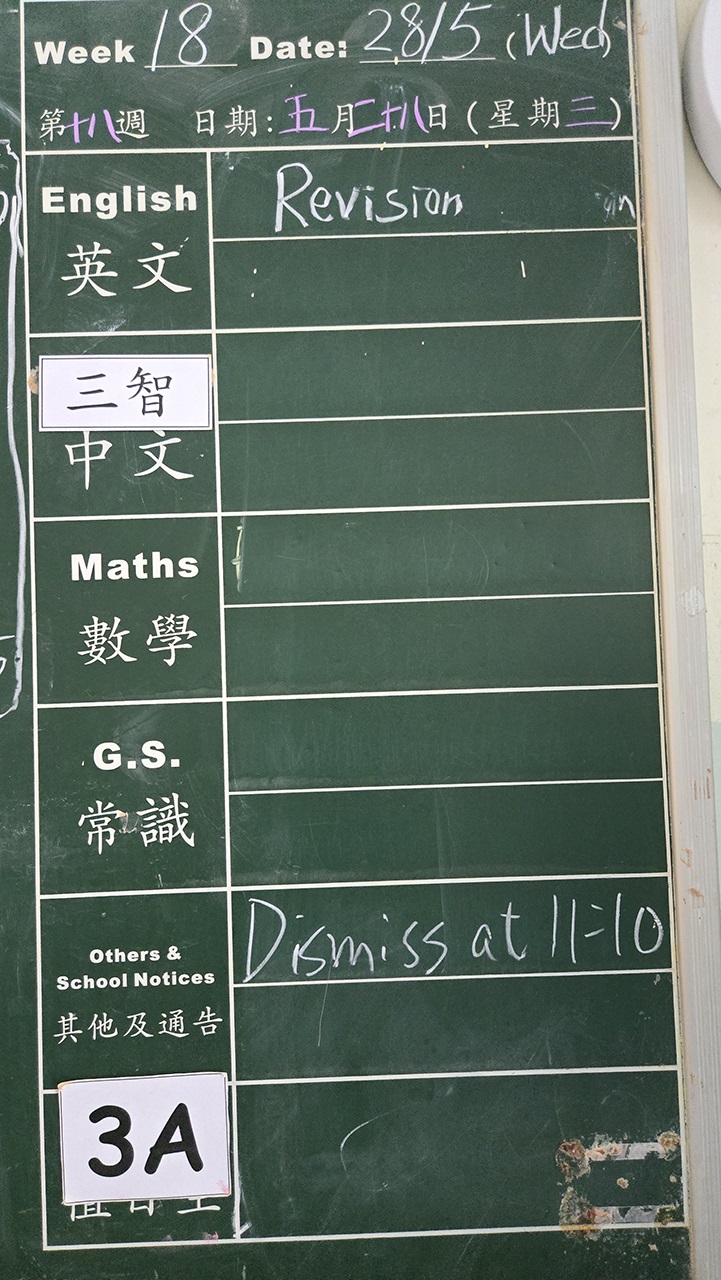 Week 18 Date: 28/5 (Wed)
第十八週 日期:五月二十八日(星期三)
English
Revision
英文
三智
中文
Maths
數學
G.S.
常識
Others &
School Notices
Dismiss at 11:10
其他及通告
3A